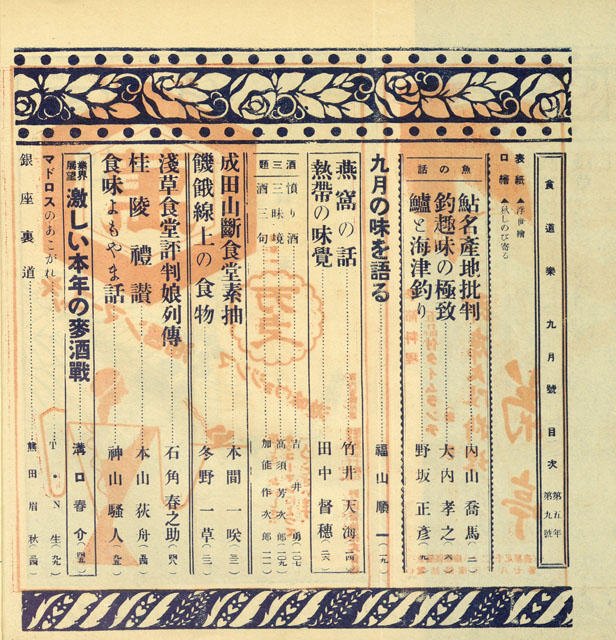 食道樂 九月號 目次 第五年 第九號
表紙 ▲浮世繪
口繪 ▲秋しのび寄る
魚の話
鮎名產地批判 內山喬馬(二)
釣趣味の極致 大內孝之(六)
鱸と海津釣り 野坂正彥(九)
九月の味を語る 福山順一(一九)
燕窩の話 竹井天海(一四)
熱帶の味覺 田中督穗(二六)
酒三題
憤り酒 吉井勇(一〇七)
三昧境 高須芳次郎(一〇九)
酒三句 加能作次郎(一一一)
成田山斷食堂素抽 本間一咲(三二)
饑餓線上の食物 冬野一草(三一)
淺草食堂評判娘列傳 石角春之助(四八)
桂陵禮讃 本山荻舟(五四)
食味よもやま話 神山騷人(九五)
業界展望 激しい本年の麥酒戰 溝口春介(四五)
マドロスのあこがれ T・N生(九九)
銀座裏道 熊田眉秋(三四)